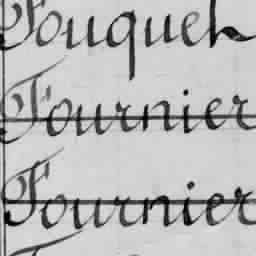 Fouquet
Fournier
Fournier